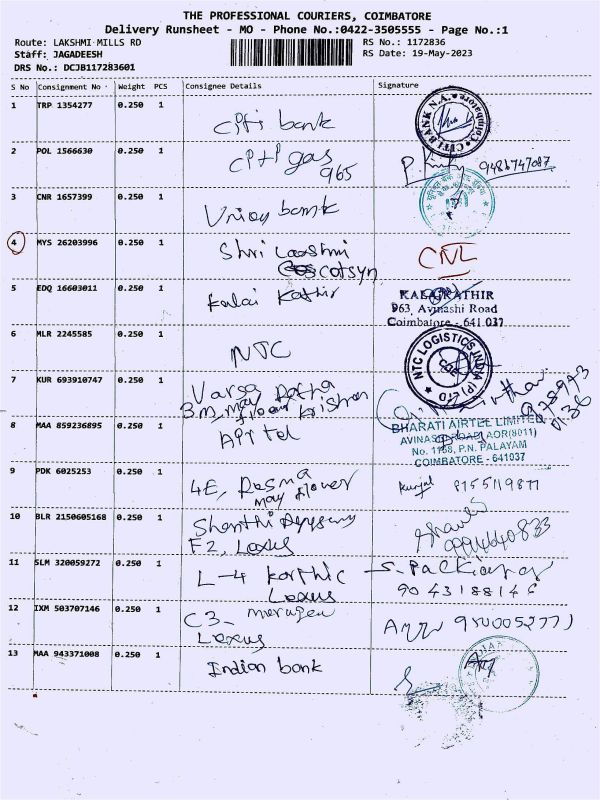 THE PROFESSIONAL COURIERS, COIMBATORE
Delivery Runsheet - MO - Phone No.:0422-3505555 - Page No.:1
Route: LAKSHMI MILLS RD
RS No.: 1172836
Staff: JAGADEESH
RS Date: 19-May-2023
DRS No.: DCJB117283601
S No Consignment No Weight PCS Consignee Details Signature
1 TRP 1354277 0.250 1 Citi bank
CITI BANK N.A. Coimbatore
2 POL 1566630 0.250 1 gas
965
9486747087
3 CNR 1657399 0.250 1 Union bank
4 MYS 26203996 0.250 1 Shri Laxshmi
cotsyn
CNL
5 EDQ 16603011 0.250 1 Kalai Kathir
KALAI KATHIR
963, Avinashi Road
Coimbatore - 641 037
6 MLR 2245585 0.250 1 NTC
NTC LOGISTICS INDIA (P) LTD
7 KUR 693910747 0.250 1 Varsa
3 m, may flower krishna
8 MAA 859236895 0.250 1 Airtel
BHARATI AIRTEL LIMITED
AVINASHI ROAD AOR(8011)
No. 1168, P.N. PALAYAM
COIMBATORE - 641037
9 PDK 6025253 0.250 1 4E,
may flower
8155119877
10 BLR 2150605168 0.250 1 Shanthi
F2, Lexus
11 SLM 320059272 0.250 1 L-4 karthic
Lexus
9043188146
12 IXM 503707146 0.250 1 C3- murugen
Lexus
13 MAA 943371008 0.250 1 Indian bank